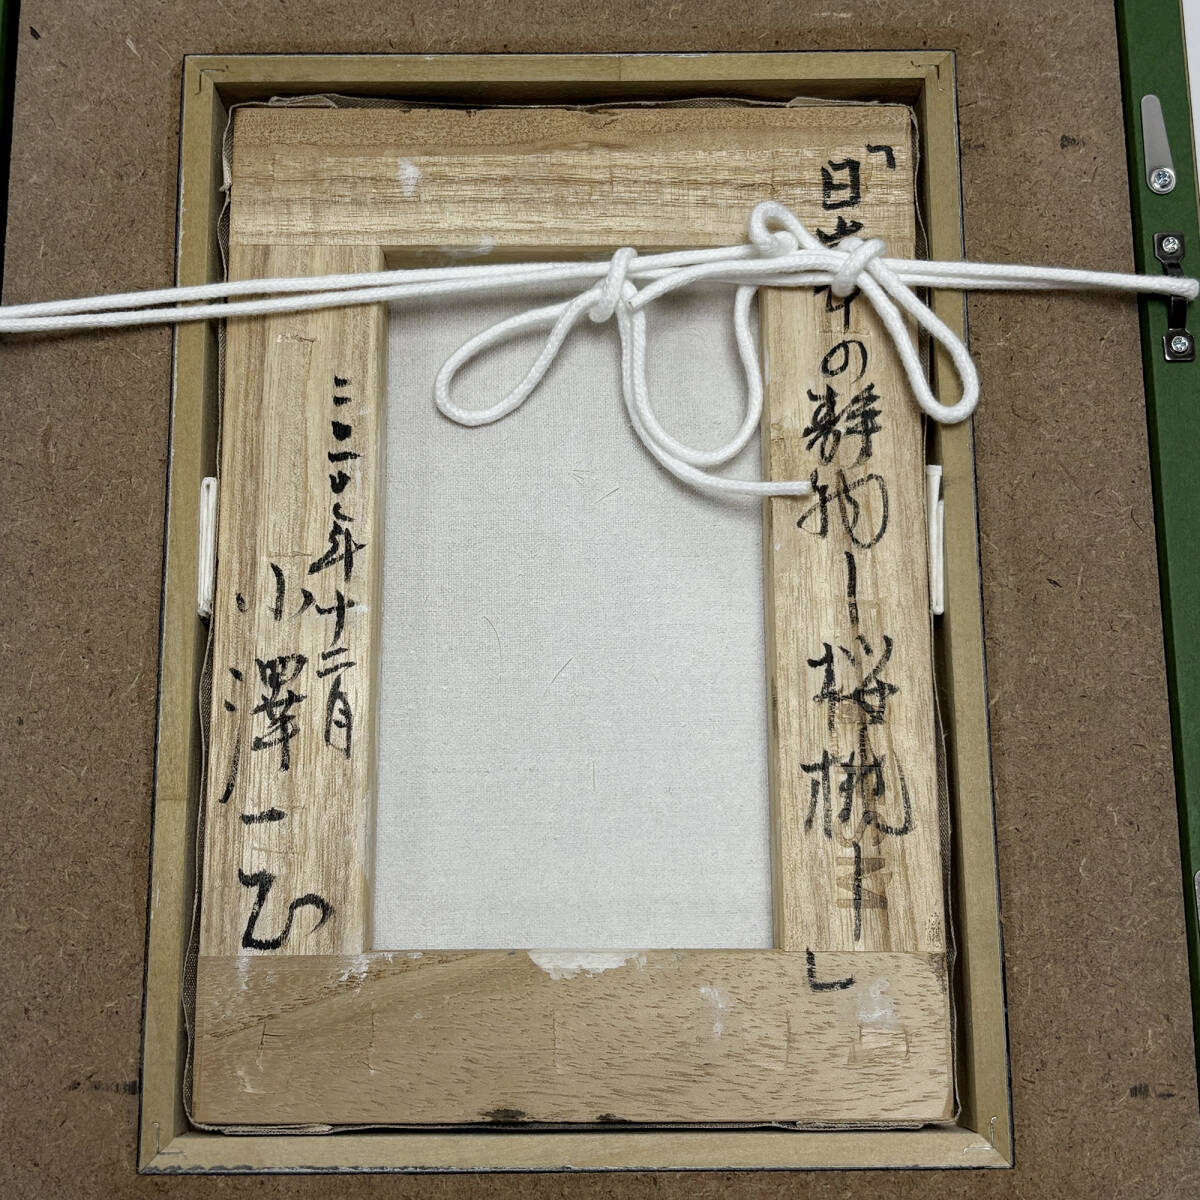 「日本の静物ー桜桃ー」
二〇一〇年十二月
小澤一正